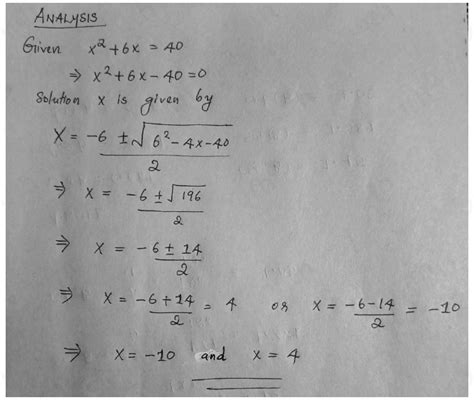 ANALYSIS
Given x² + 6x = 40
⇒ x² + 6x - 40 = 0
Solution x is given by
X = -6 ± √6² - 4x-40
2
⇒ x = -6 ± √196
2
⇒ x = -6 ± 14
2
⇒ x = -6 + 14 = 4 or x = -6 - 14 = -10
2 2
⇒ x = -10 and x = 4